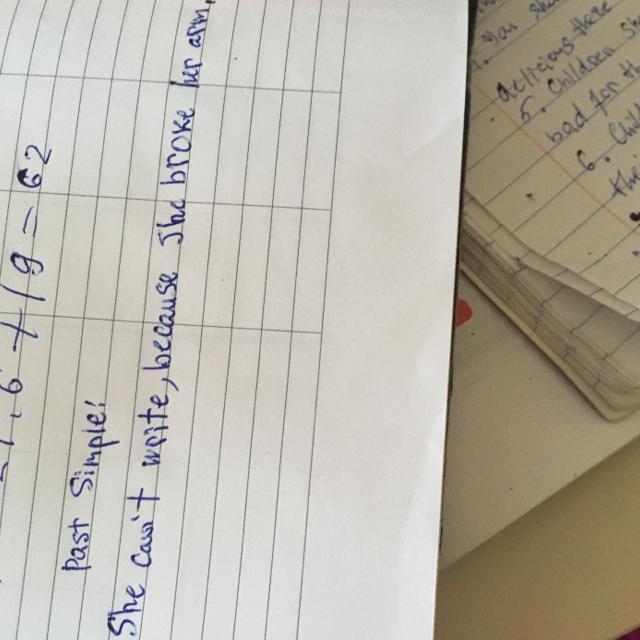 + 19 = 62
Past Simple:
She can't write, because she broke her arm.
delicious these
5. Children
bad for
6.